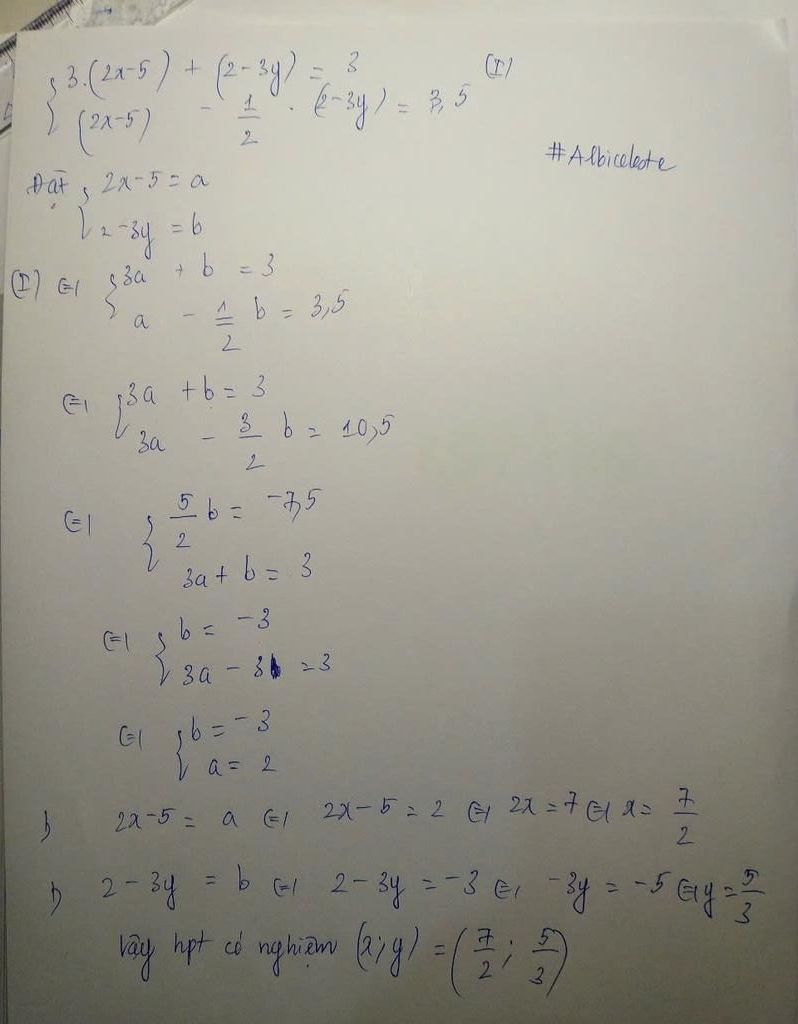 { 3.(2x-5) + (2-3y) = 3 (I)
(2x-5) - 1/2 . (2-3y) = 3,5
#Albiceleste
Đặt { 2x-5 = a
2-3y = b
(I) ⇔ { 3a + b = 3
a - 1/2 b = 3,5
⇔ { 3a + b = 3
3a - 3/2 b = 10,5
⇔ { 5/2 b = -7,5
3a + b = 3
⇔ { b = -3
3a - 3 = 3
⇔ { b = -3
a = 2
2x-5 = a ⇔ 2x-5 = 2 ⇔ 2x = 7 ⇔ x = 7/2
2-3y = b ⇔ 2-3y = -3 ⇔ -3y = -5 ⇔ y = 5/3
Vậy hpt có nghiệm (x;y) = (7/2; 5/3)